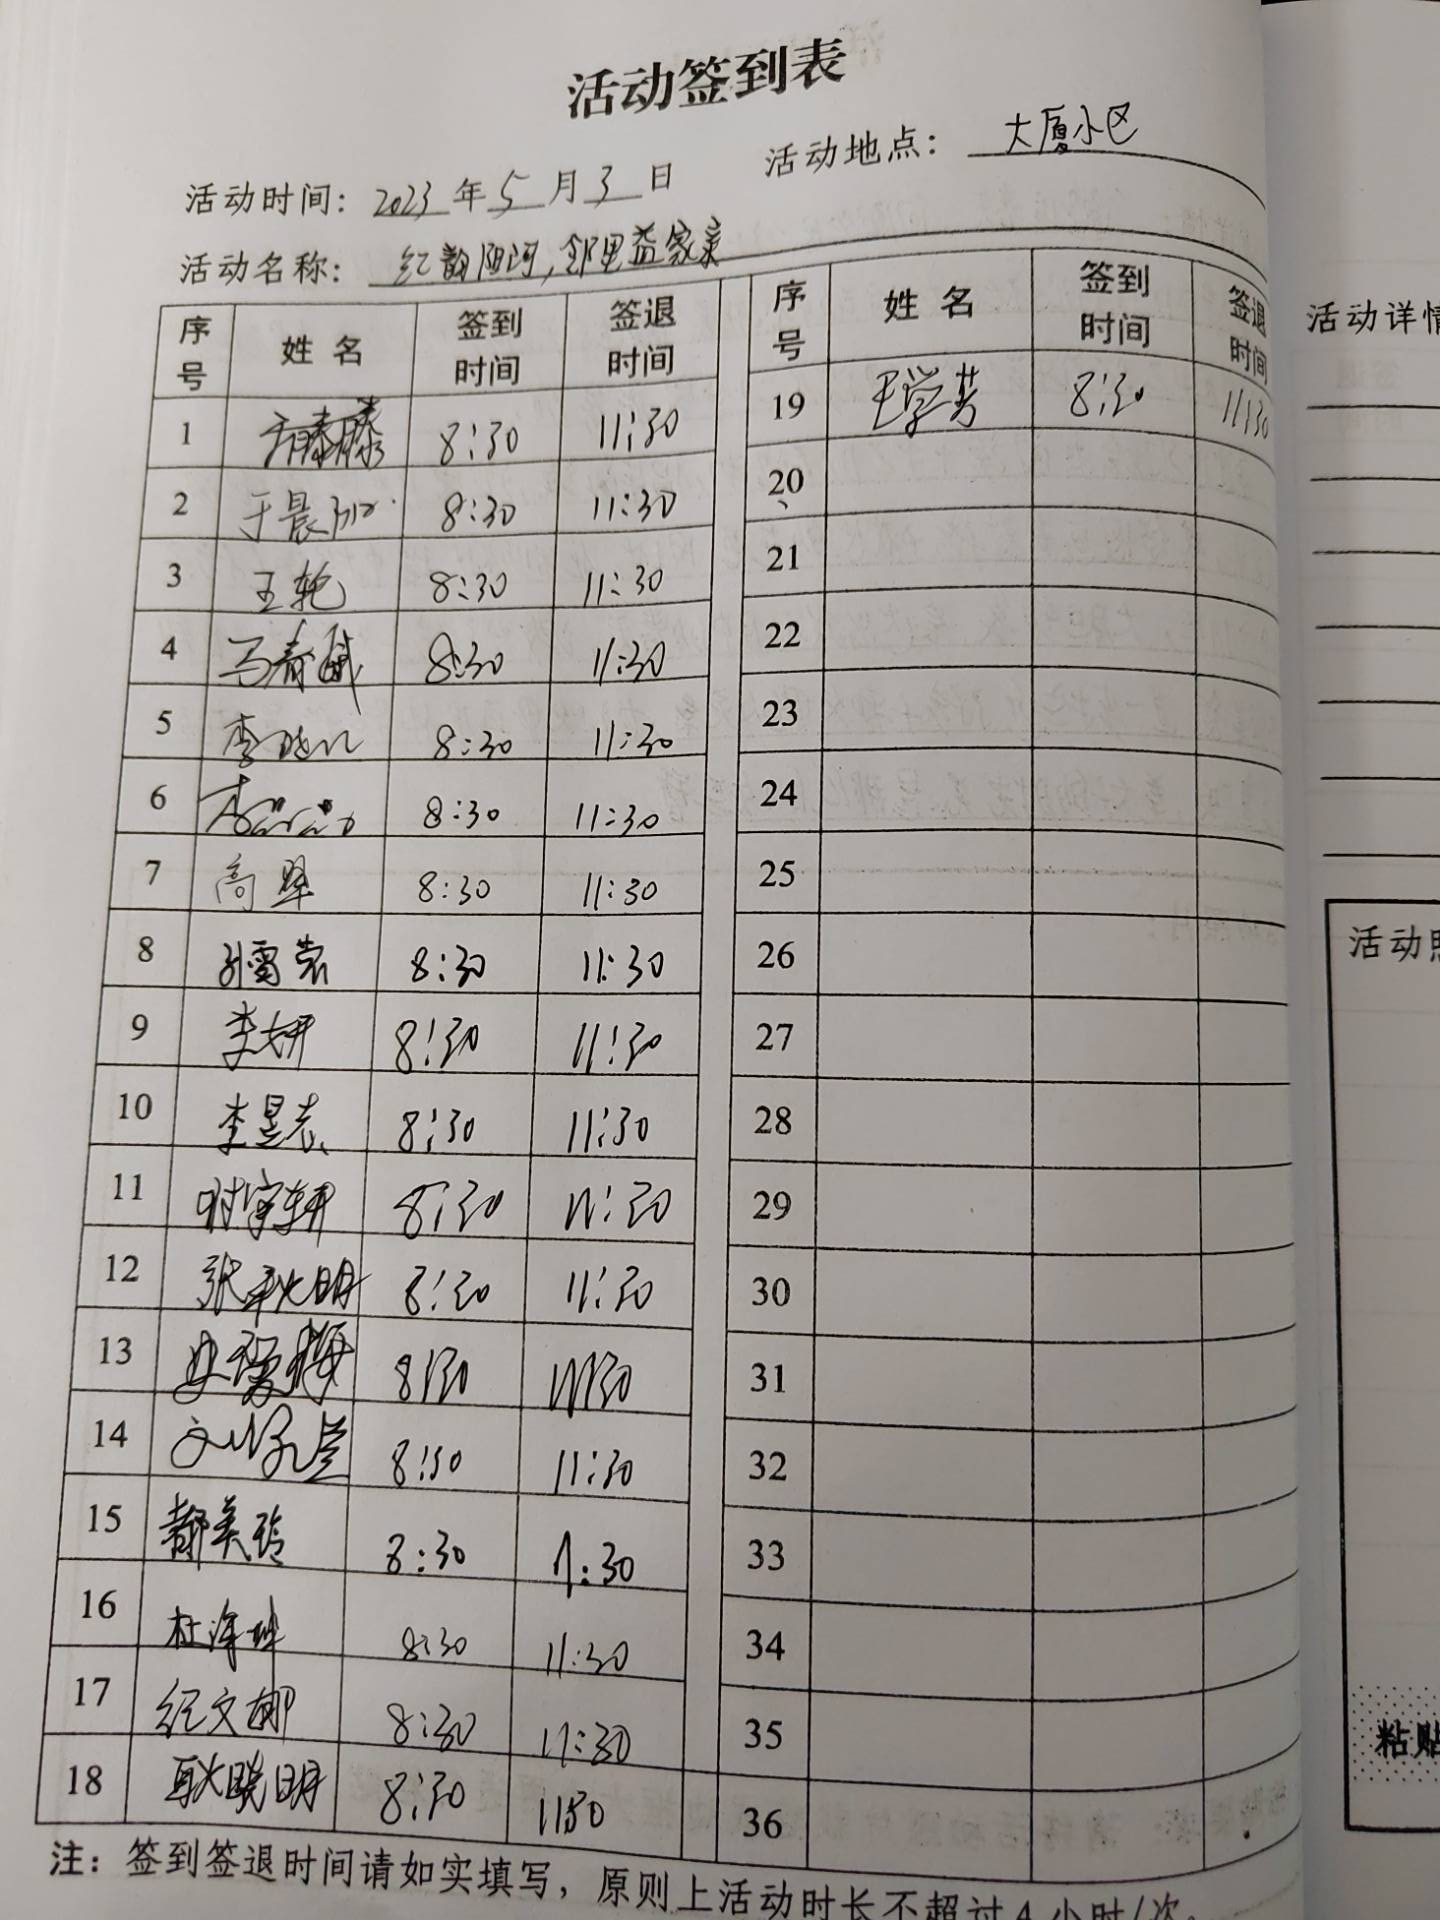 活动签到表
活动时间：2023年5月3日 活动地点：大厦小区
活动名称：红韵阳河,邻里益家亲
序号 姓名 签到时间 签退时间 序号 姓名 签到时间 签退时间
1 8:30 11:30 19 王学芳 8:30 11:30
2 于晨 8:30 11:30 20
3 王艳 8:30 11:30 21
4 马春 8:30 11:30 22
5 李晓 8:30 11:30 23
6 李 8:30 11:30 24
7 高翠 8:30 11:30 25
8 孙雷 8:30 11:30 26
9 李妍 8:30 11:30 27
10 李昱志 8:30 11:30 28
11 时宇轩 8:30 11:30 29
12 张秋明 8:30 11:30 30
13 8:30 11:30 31
14 8:30 11:30 32
15 都美玲 8:30 11:30 33
16 杜 8:30 11:30 34
17 纪文娜 8:30 11:30 35
18 耿晓明 8:30 1130 36
注：签到签退时间请如实填写，原则上活动时长不超过4小时/次。
活动详情
活动照
粘贴